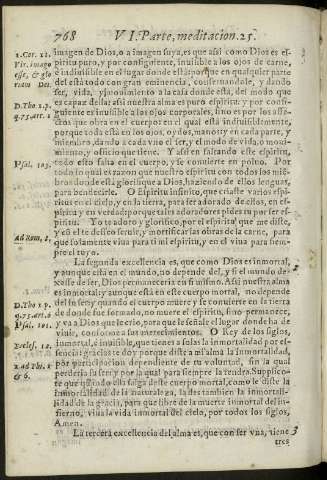 768 VI. Parte, meditacion. 25.
1. Cor. 11.
Vir. imago
esse, & glo
ria Dei.
D. Tho 1. p.
q. 75. art. 2
Psal. 103.
Ad Rom, 8.
D. Tho 1. p.
q. 75. art. 6
Psal. 101.
Eccles. 12.
2 ad Tho. 1
& 6.
imagen de Dios, o a imagen suya, es que asi como Dios es es-
piritu puro, y por consiguiente, inuisible a los ojos de carne,
è indiuisible en el lugar donde està: porque en qualquier parte
del està todo con gran eminencia, conseruandole, y dando
ser, vida, y mouimiento a la casa donde està, del modo que
es capaz della: asi nuestra alma es puro espiritu: y por consi-
guiente es inuisible a los ojos corporales, sino es por los affe-
ctos que obra en el cuerpo en el qual està indiuisiblemente,
porque toda està en los ojos, oydos, manos: y en cada parte, y
miembro, dando a cada vno el ser, y el modo de vida, o moui-
miento, y oficio que tiene. Y assi en faltando este espiritu,
todo esto falta en el cuerpo, y se conuierte en poluo. Por
todo lo qual es razon que nuestro espiritu con todos los miẽ-
bros donde està glorifique a Dios, haziendo de ellos lenguas,
para bendezirle. O Espiritu infinito, que criaste varios espi-
ritus en el cielo, y en la tierra, para ser adorado de ellos, en es-
piritu y en verdad: porque tales adoradores pides tu por ser es-
piritu: Yo te adoro y glorifico, por el espiritu que me diste,
y es el te desseo seruir, y mortificar las obras de la carne, para
que solamente viua para ti mi espiritu, y en el viua para siem-
pre el tuyo.
La segunda excellencia es, que como Dios es inmortal, 2
y aunque està en el mundo, no depende del, y si el mundo de-
xasse de ser, Dios permaneceria en si mismo. Asi nuestra alma
es inmortal: y aunque està en este cuerpo mortal, no depende
del su ser: y quando el cuerpo muere y se conuierte en la tierra
de donde fue formado, no muere el espiritu, sino permanece,
y va a Dios que le crio, para que le señale el lugar donde ha de
viuir, conforme a sus merecimientos. O Rey de los siglos,
inmortal, è inuisible, que tienes a solas la inmortalidad por es-
sencia: gracias te doy porque diste a mi alma la inmortalidad,
por participacion dependiente de tu voluntad, sin la qual
perderia su ser: y por la qual para siempre la tendra. Supplico-
te que quãdo ella salga deste cuerpo mortal, como le diste la
inmortalidad de la naturaleza, la des tambien la inmortali-
lidad de la gracia, para que libre de la muerte inmortal del in-
fierno, viua la vida inmortal del cielo, por todos los siglos,
Amen.
La tercera excellencia del alma es, que con ser vna, tiene 3
tres